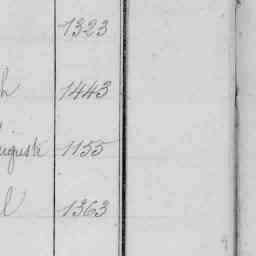 1323
h 1443
uguste 1155
l 1363